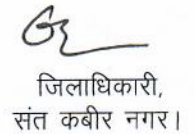 जिलाधिकारी,
संत कबीर नगर।